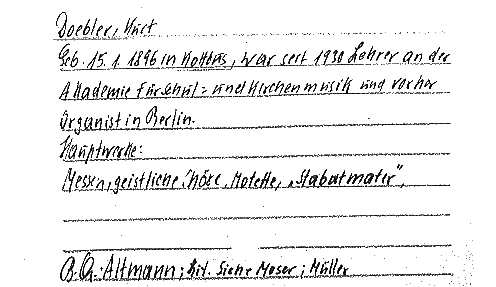 Doebler, Kurt
Geb. 15.1.1896 in Kottbus, war seit 1930 Lehrer an der
Akademie für Schul- und Kirchenmusik und vorher
Organist in Berlin.
Hauptwerke:
Messen, geistliche Chöre, Motette, „Stabat mater",
B.Q.: Altmann; Lit. Siehe Moser; Müller